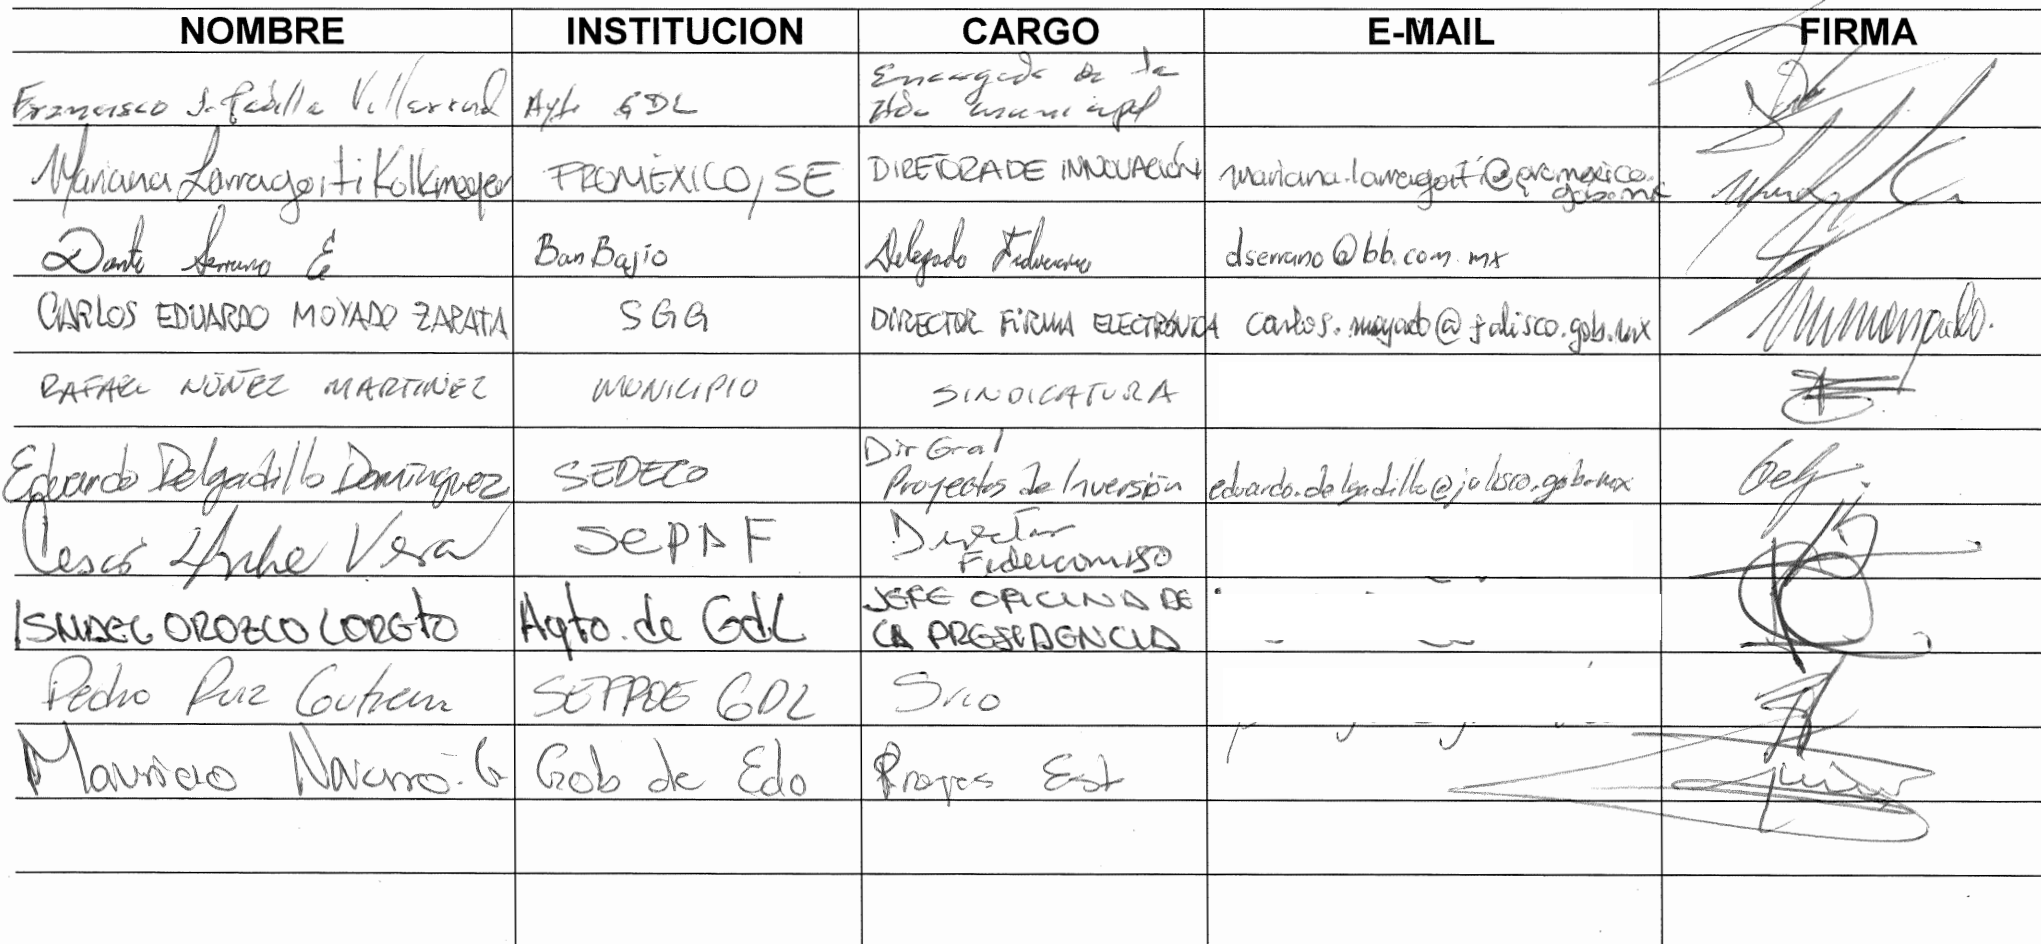 NOMBRE INSTITUCION CARGO E-MAIL FIRMA
Francisco J. Padilla Villarruel Ayto GDL Encargado de la
Hda municipal
Mariana Larragoiti Kolkmeyer PROMÉXICO, SE DIRETORA DE INNOVACIÓN mariana.larragoiti@promexico.
gob.mx
Dante Serrano E BanBajío Delegado Fiduciario dserrano@bb.com.mx
CARLOS EDUARDO MOYADO ZAPATA SGG DIRECTOR FIRMA ELECTRÓNICA carlos.moyado@jalisco.gob.mx
RAFAEL NÚÑEZ MARTINEZ MUNICIPIO SINDICATURA
Eduardo Delgadillo Dominguez SEDECO Dir Gral
Proyectos de Inversión eduardo.delgadillo@jalisco.gob.mx
Vera SEPAF Director
Fideicomiso
ISMAEL OROZCO LORETO Ayto. de Gdl JEFE OFICINA DE
LA PRESIDENCIA
Pedro Ruiz Gutierrez GDL Srio
Mauricio Navarro. G Gob de Edo Proyes Est